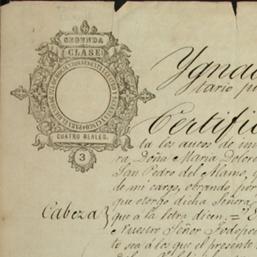 SEGUNDA
CLASE
CUATRO REALES.
3
Ygnac
tario p
Certific
ta los autos de in
ra, Doña Maria Dolor
San Pedro del Alamo, q
de mi cargo, obrando por
que otorgó dicha Señora,
Cabeza} que à la letra dicen, ="
Nuestro Señor Todopode
te sea á los que el presente